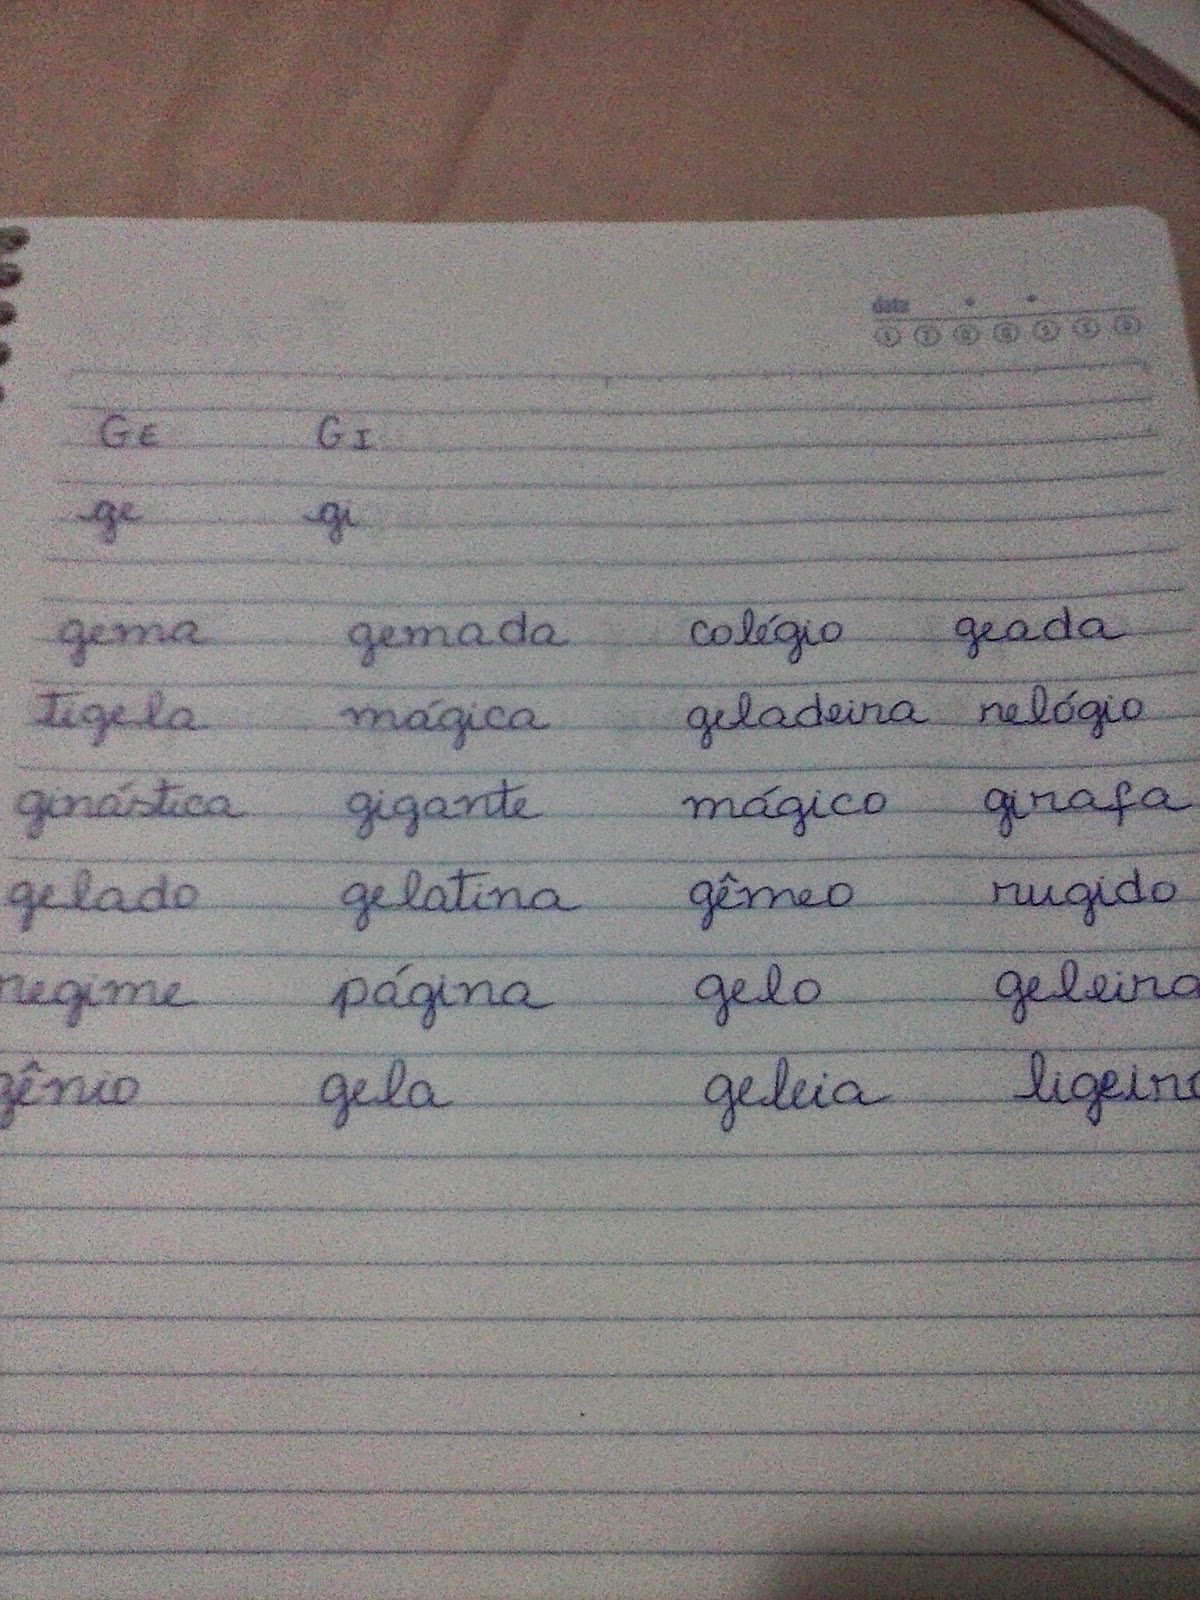 data
S T Q Q S S D
GE GI
ge gi
gema gemada colégio geada
tigela mágica geladeira relógio
ginástica gigante mágico girafa
gelado gelatina gêmeo rugido
regime página gelo geleira
gênio gela geleia ligeiro